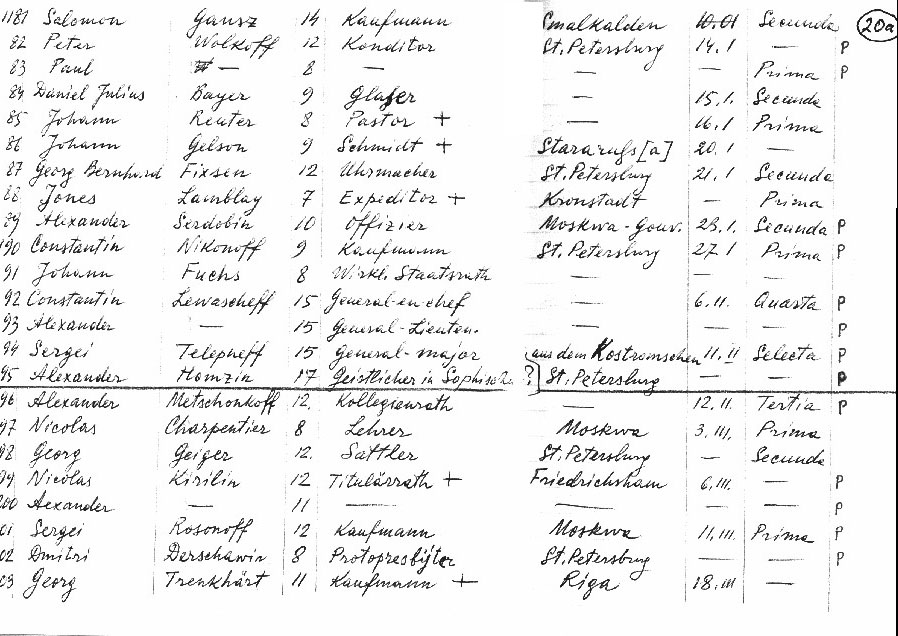 1181 Salomon Gansz 14 Kaufmann Smalkalden 10.01 Secunda 20a
82 Peter Wolkoff 12 Konditor St. Petersburg 14.1 — P
83 Paul — 8 — — — Prima P
84 Daniel Julius Bayer 9 Glaser — 15.1. Secunda
85 Johann Reuter 8 Pastor + — 16.1 Prima
86 Johann Gelson 9 Schmidt + Stararuss[a] 20.1 —
87 Georg Bernhard Fixsen 12 Uhrmacher St. Petersburg 21.1 Secunda
88 Jones Lamblay 7 Expeditor + Kronstadt — Prima
89 Alexander Serdobin 10 Offizier Moskwa-Gouv. 23.1. Secunda P
190 Constantin Nikonoff 9 Kaufmann St. Petersburg 27.1 Prima P
91 Johann Fuchs 8 Wirkl. Staatsrath — — —
92 Constantin Lewascheff 15 General-en-chef — 6.II. Quarta P
93 Alexander — 15 General-Lieuten. — — — P
94 Sergei Telepneff 15 General-major aus dem Kostromschen 11.II Selecta P
95 Alexander Homzin 17 Geistlicher in Sophisch. ? St. Petersburg — — P
96 Alexander Metschonkoff 12. Kollegienrath — 12.II. Tertia P
97 Nicolas Charpentier 8 Lehrer Moskwa 3.III. Prima
98 Georg Geiger 12. Sattler St. Petersburg — Secunda
99 Nicolas Kirilin 12 Titulärrath + Friedrichsham 6.III. — P
200 Aexander — 11 — — — — P
01 Sergei Rosonoff 12 Kaufmann Moskwa 11.III Prima P
02 Dmitri Derschawin 8 Protopresbÿter St. Petersburg — — P
03 Georg Trenkhärt 11 Kaufmann + Riga 18.III —